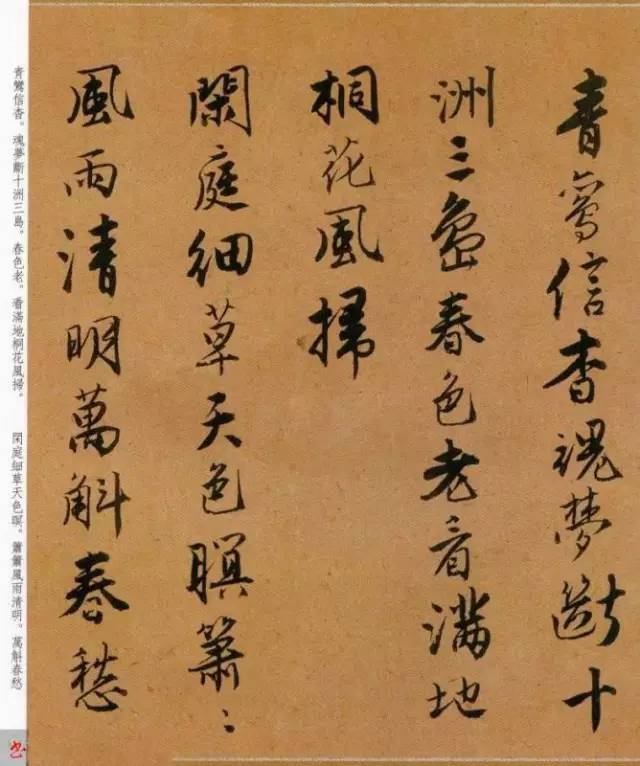 青鸞信杳魂夢斷十
洲三島春色老看滿地
桐花風掃
閑庭細草天色瞑簫〻
風雨清明萬斛春愁
青鸞信杳。魂夢斷十洲三島。春色老。看滿地桐花風掃。
閑庭細草天色瞑。簫簫風雨清明。萬斛春愁